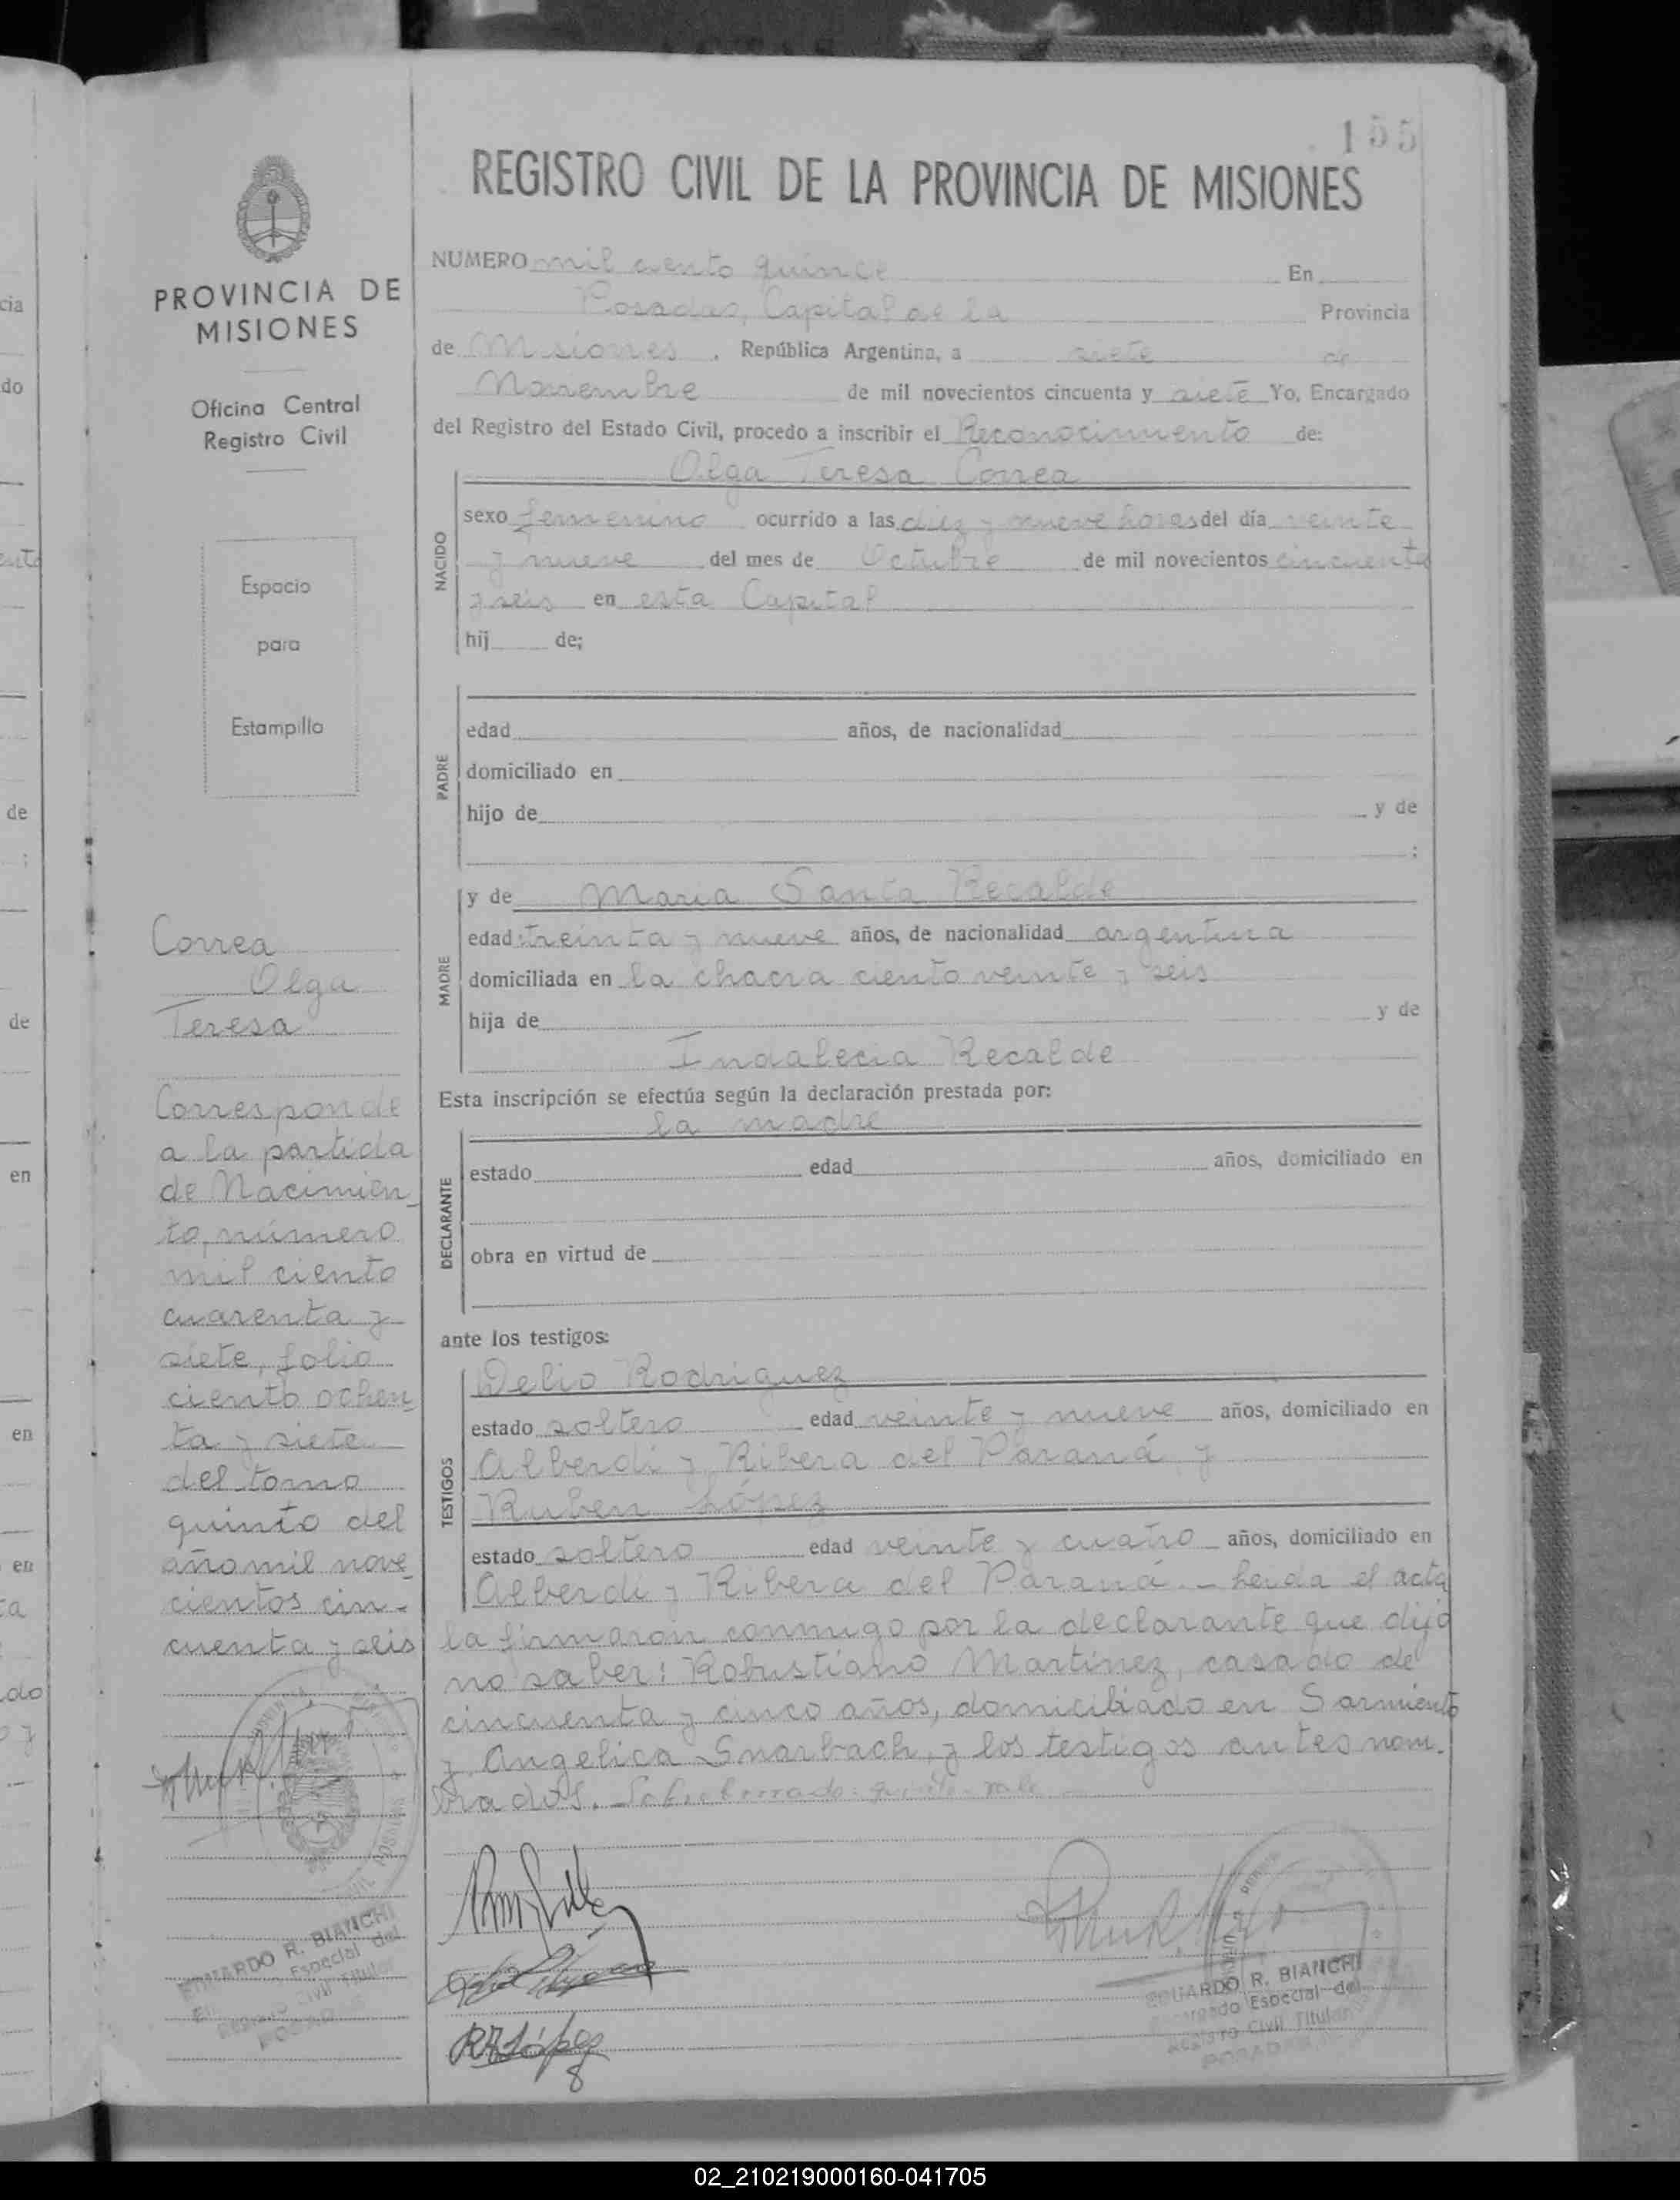 155
REGISTRO CIVIL DE LA PROVINCIA DE MISIONES
PROVINCIA DE
MISIONES
Oficina Central
Registro Civil
Espacio
para
Estampilla
Correa
Olga
Teresa
Corresponde
a la partida
de Nacimien_
to, número
mil ciento
cuarenta y
siete, folio
ciento ochen_
ta y siete
del tomo
quinto del
año mil nove_
cientos cin-
cuenta y seis
EDUARDO R. BIANCHI
Especial del
Registro Civil Titular
POSADAS
NUMERO mil ciento quince En
Posadas, Capital de la Provincia
de Misiones . República Argentina, a siete de
Noviembre de mil novecientos cincuenta y siete Yo, Encargado
del Registro del Estado Civil, procedo a inscribir el Reconocimiento de:
Olga Teresa Correa
NACIDO
sexo femenino ocurrido a las diez y nueve horas del día veinte
y nueve del mes de Octubre de mil novecientos cincuenta
y seis en esta Capital
hij de;
PADRE
edad años, de nacionalidad
domiciliado en
hijo de y de
;
MADRE
y de Maria Santa Recalde
edad treinta y nueve años, de nacionalidad argentina
domiciliada en la chacra ciento veinte y seis
hija de y de
Indalecia Recalde
Esta inscripción se efectúa según la declaración prestada por:
la madre
DECLARANTE
estado edad años, domiciliado en
obra en virtud de
ante los testigos:
TESTIGOS
Delio Rodriguez
estado soltero edad veinte y nueve años, domiciliado en
Alberdi y Ribera del Paraná y
Ruben López
estado soltero edad veinte y cuatro años, domiciliado en
Alberdi y Ribera del Paraná.- Leida el acta
la firmaron conmigo por la declarante que dijo
no saber: Robustiano Martínez, casado de
cincuenta y cinco años, domiciliado en Sarmiento
y Angelica Snarbach, y los testigos antes nom.
brados. Sobreborrado: quinto- vale
RLópez
EDUARDO R. BIANCHI
Encargado Especial del
Registro Civil Titular
POSADAS
en
do
de
;
de
en
en
en
do
02_210219000160-041705